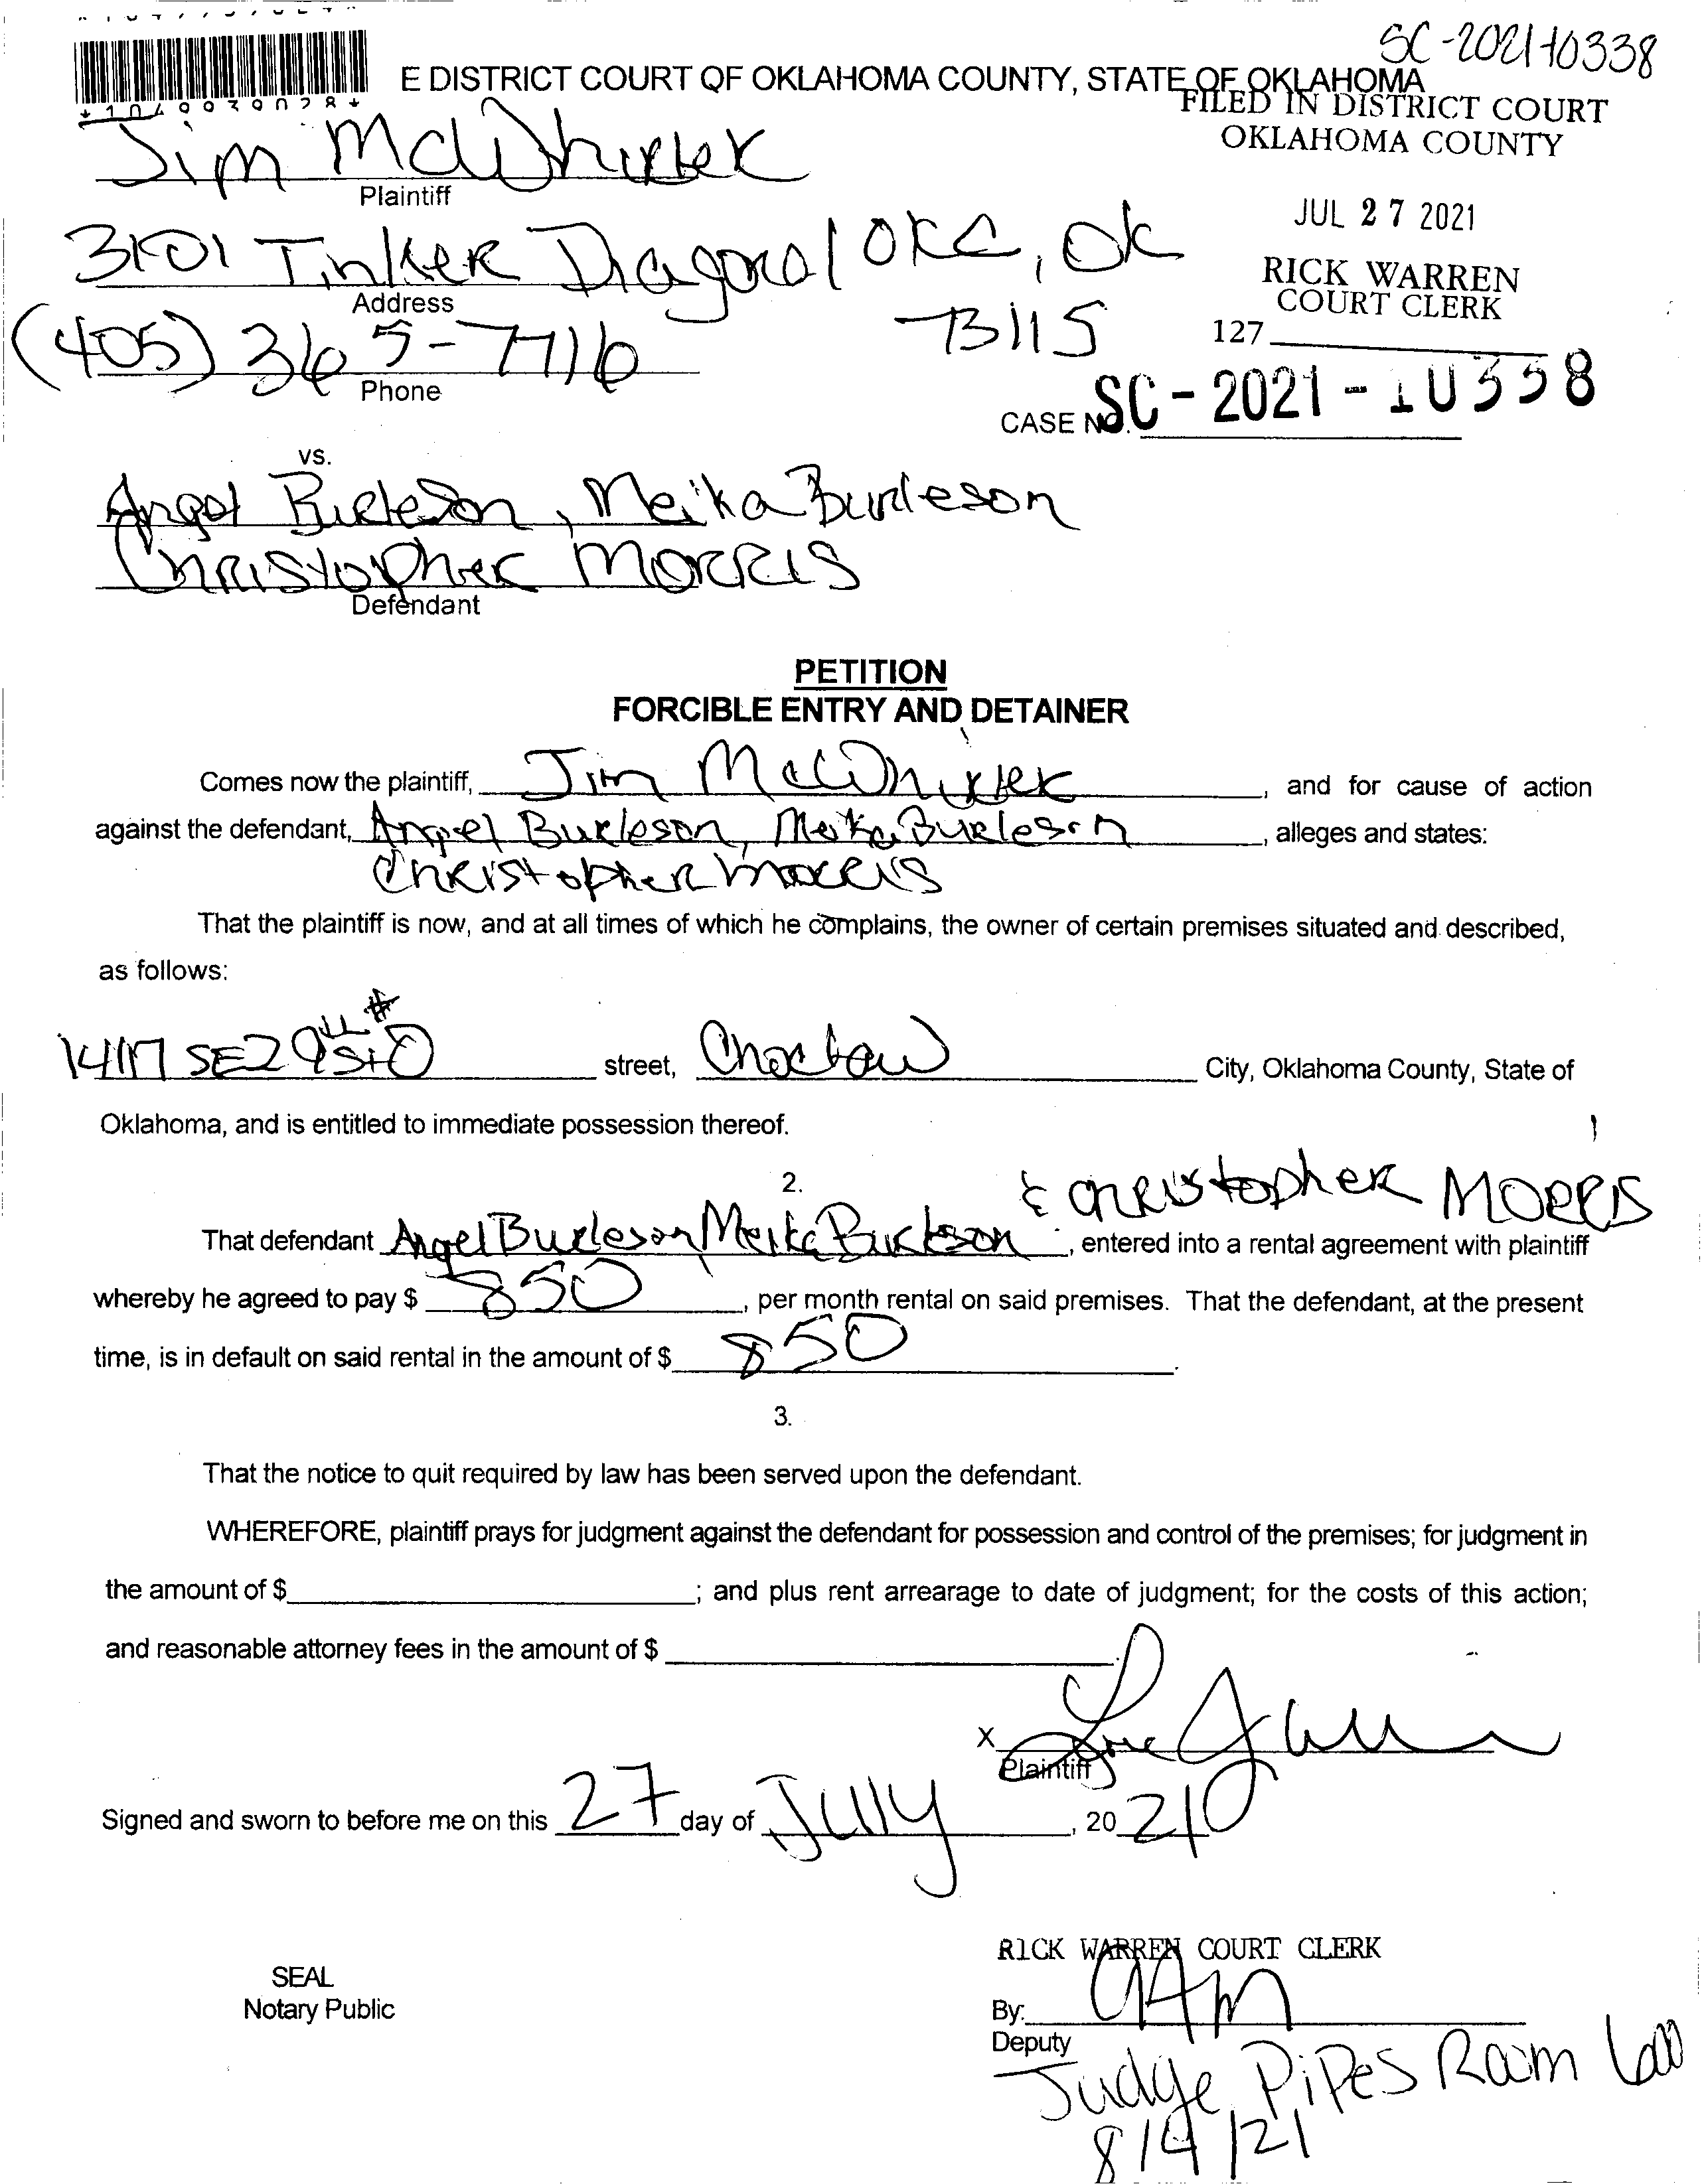 SC-2021-10338
E DISTRICT COURT OF OKLAHOMA COUNTY, STATE OF OKLAHOMA
FILED IN DISTRICT COURT
OKLAHOMA COUNTY
Jim McWhirter
Plaintiff
JUL 27 2021
3101 Tinker Diagonal OKC, OK
Address
73115
RICK WARREN
COURT CLERK
127
(405) 365-7716
Phone
CASE NO. SC-2021-10338
vs.
Angel Burleson, Meika Burleson
Christopher Morris
Defendant
PETITION
FORCIBLE ENTRY AND DETAINER
Comes now the plaintiff, Jim McWhirter, and for cause of action
against the defendant, Angel Burleson, Meika Burleson, alleges and states:
Christopher Morris
That the plaintiff is now, and at all times of which he complains, the owner of certain premises situated and described,
as follows:
SE 29 street, Choctaw City, Oklahoma County, State of
Oklahoma, and is entitled to immediate possession thereof.
2.
& Christopher Morris
That defendant Angel Burleson Meika Burleson, entered into a rental agreement with plaintiff
whereby he agreed to pay $ 850, per month rental on said premises. That the defendant, at the present
time, is in default on said rental in the amount of $ 850.
3.
That the notice to quit required by law has been served upon the defendant.
WHEREFORE, plaintiff prays for judgment against the defendant for possession and control of the premises; for judgment in
the amount of $; and plus rent arrearage to date of judgment; for the costs of this action;
and reasonable attorney fees in the amount of $.
X
Plaintiff
Signed and sworn to before me on this 27 day of July, 20 21
RICK WARREN COURT CLERK
SEAL
Notary Public
By:
Deputy
Judge Pipes Room
8/4/21